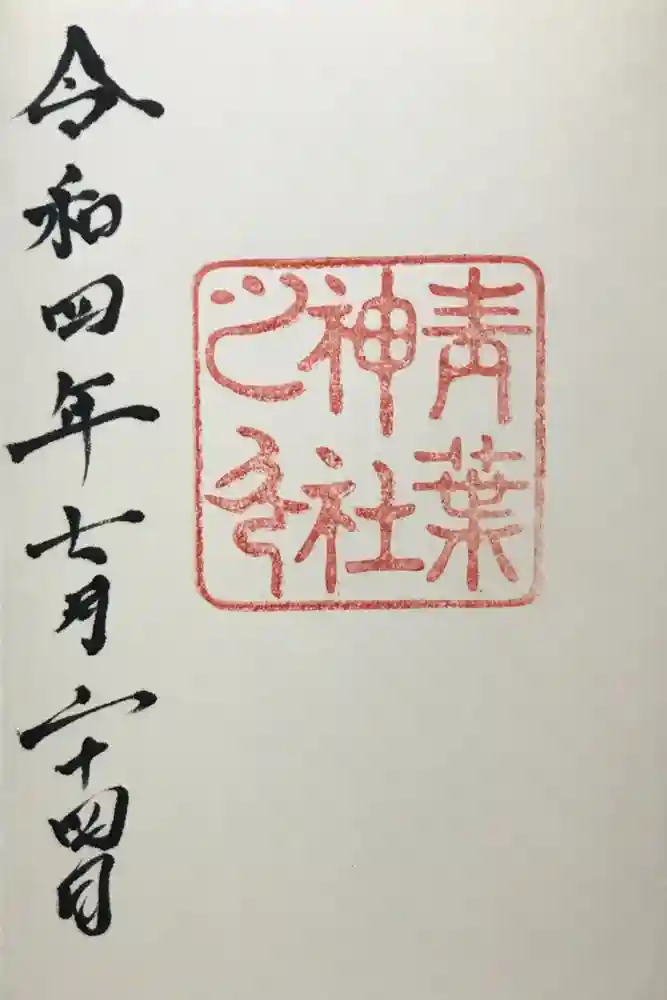 青葉
神社
之印
令和四年七月二十四日